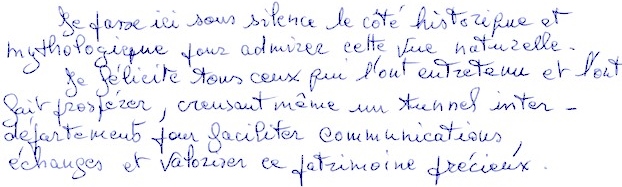 Je passe ici sous silence le côté historique et
mythologique pour admirer cette vue naturelle.
Je félicite tous ceux qui l'ont entretenu et l'ont
fait prospérer, creusant même un tunnel inter-
départements pour faciliter communications,
échanges et valoriser ce patrimoine précieux.